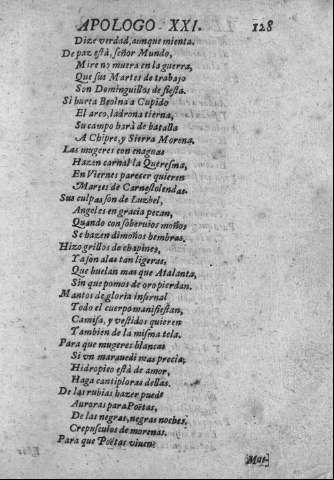 APOLOGO XXI. 128
Dize verdad, aunque mienta.
De paz està, señor Mundo,
Mire no muera en la guerra,
Que sus Martes de trabajo
Son Dominguillos de fiesta.
Si hurta Beolna a Cupido
El arco, ladrona tierna,
Su campo harà de batalla
A Chipre, y Sierra Morena.
Las mugeres con enaguas
Hazen carnal la Quaresma,
En Viernes parecer quieren
Martes de Carnestolendas.
Sus culpas son de Luzbel,
Angeles en gracia pecan,
Quando con soberuios moños
Se hazen dimoños hembras.
Hizo grillos de chapines,
Ya son alas tan ligeras,
Que buelan mas que Atalanta,
Sin que pomos de oro pierdan.
Mantos de gloria infernal
Todo el cuerpo manifiestan,
Camisa, y vestidos quieren
Tambien de la misma tela.
Para que mugeres blancas
Si vn marauedi mas precia,
Hidropico està de amor,
Haga cantiploras dellas.
De las rubias hazer puede
Auroras para Poëtas,
De las negras, negras noches,
Crepusculos de morenas.
Para que Poëtas viuen